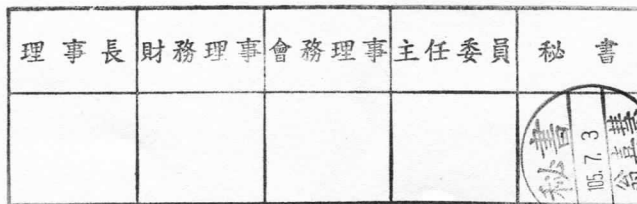 理事長 財務理事 會務理事 主任委員 秘書
秘書
105.7.3